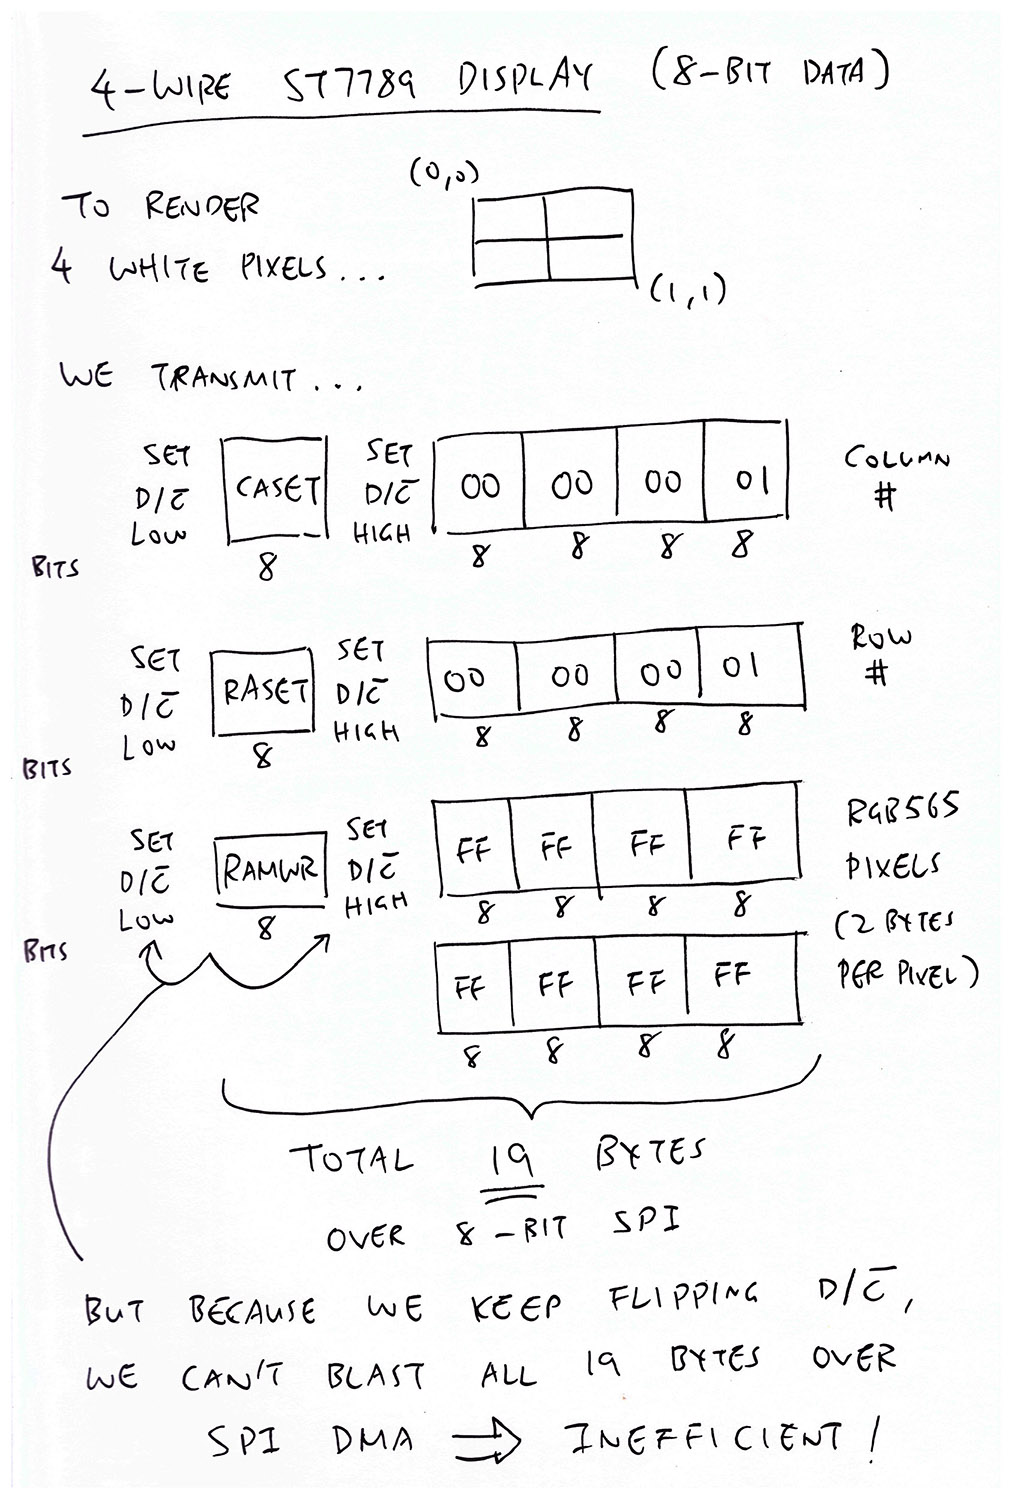 4-WIRE ST7789 DISPLAY (8-BIT DATA)
TO RENDER
4 WHITE PIXELS...
(0,0)
(1,1)
WE TRANSMIT...
SET D/C̅ LOW
CASET
8
SET D/C̅ HIGH
00 00 00 01
8 8 8 8
COLUMN #
BITS
SET D/C̅ LOW
RASET
8
SET D/C̅ HIGH
00 00 00 01
8 8 8 8
ROW #
BITS
SET D/C̅ LOW
RAMWR
8
SET D/C̅ HIGH
FF FF FF FF
8 8 8 8
FF FF FF FF
8 8 8 8
RGB565
PIXELS
(2 BYTES
PER PIXEL)
BITS
TOTAL 19 BYTES
OVER 8-BIT SPI
BUT BECAUSE WE KEEP FLIPPING D/C̅,
WE CAN'T BLAST ALL 19 BYTES OVER
SPI DMA ⇒ INEFFICIENT!